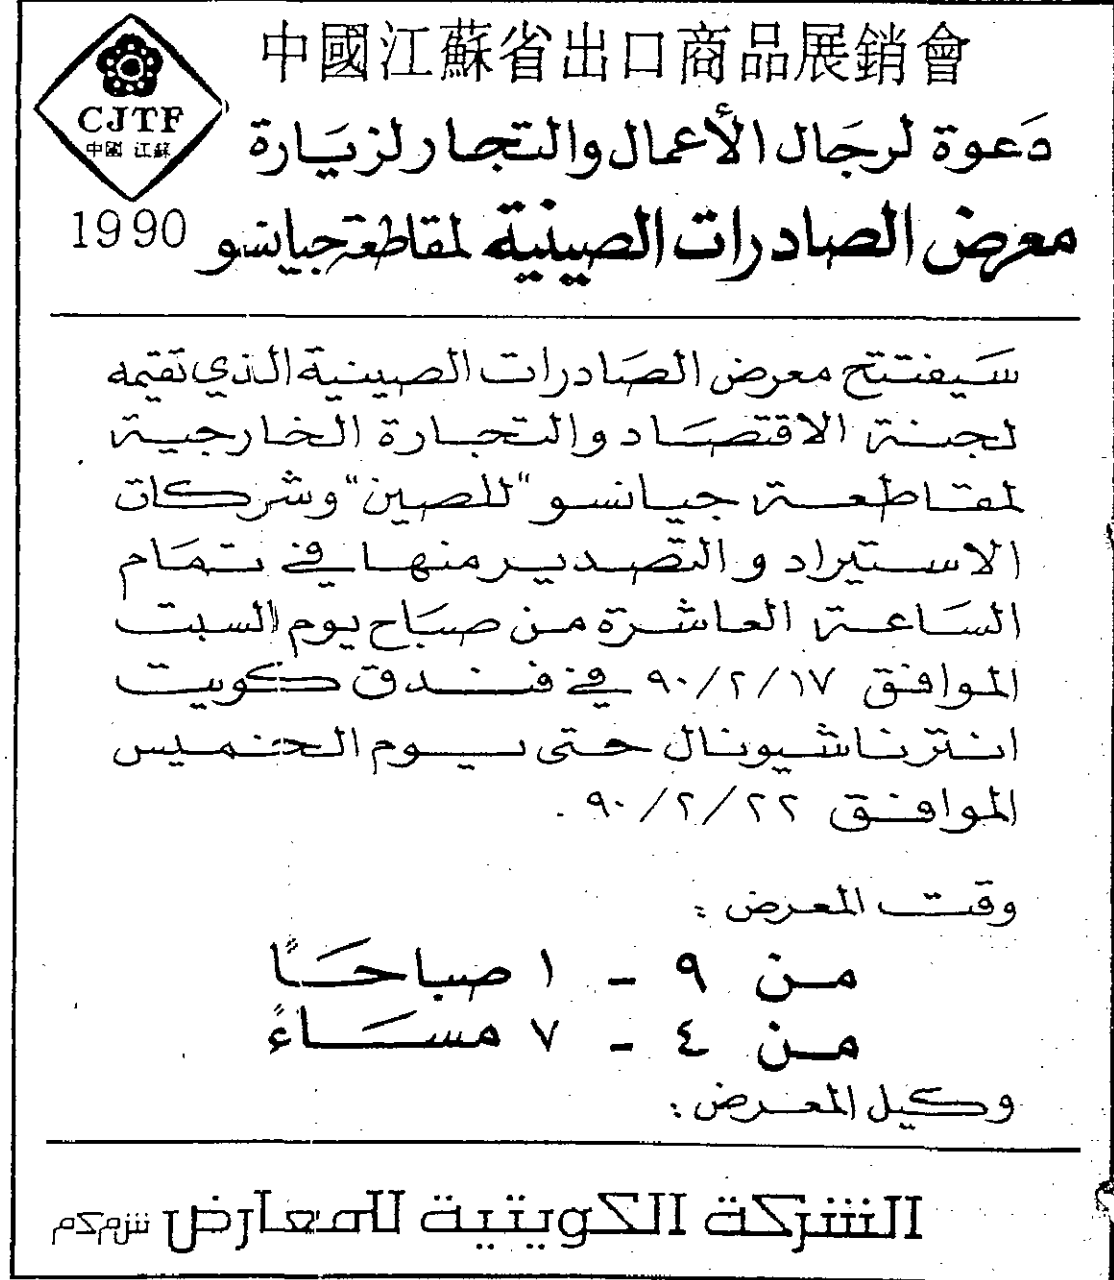 中國江蘇省出口商品展銷會
CJTF
中國 江蘇
دعوة لرجال الأعمال والتجار لزيارة
معرض الصادرات الصينية لمقاطعة جيانسو 1990
سيفتتح معرض الصادرات الصينية الذي تقيمه
لجنة الاقتصاد والتجارة الخارجية
لمقاطعة جيانسو "للصين" وشركات
الاستيراد والتصدير منها في تمام
الساعة العاشرة من صباح يوم السبت
الموافق ٩٠/٢/١٧ في فندق كويت
انترناشيونال حتى يوم الخميس
الموافق ٩٠/٢/٢٢ .
وقت المعرض :
من ٩ - ١ صباحًا
من ٤ - ٧ مساءً
وكيل المعرض :
الشركة الكويتية للمعارض ش.م.ك.م